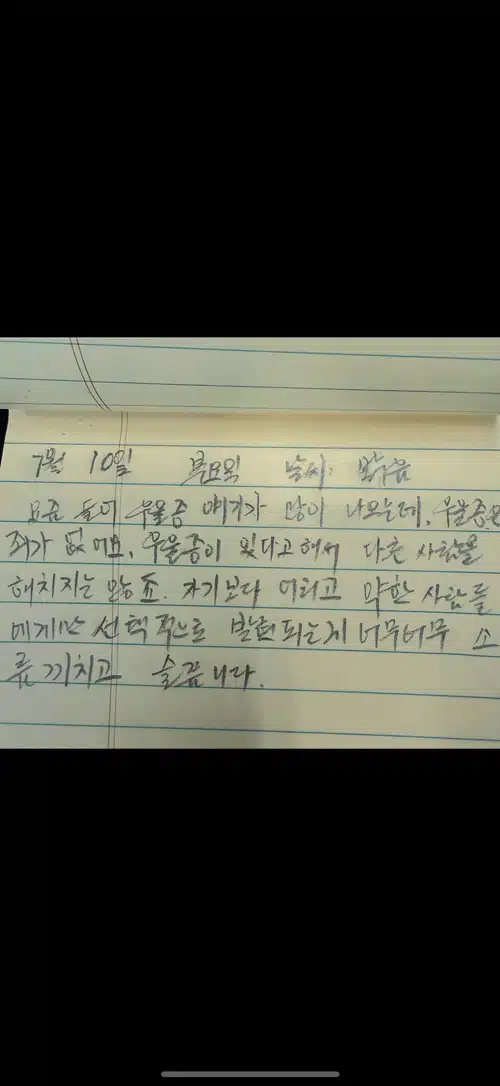 7월 10일 목요일 날씨: 맑음
요즘 들어 우울증 얘기가 많이 나오는데, 우울증은
죄가 없어요. 우울증이 있다고 해서 다른 사람을
해치지는 않죠. 자기보다 어리고 약한 사람들
에게만 선택적으로 발현되는게 너무너무 소
름끼치고 슬픕니다.